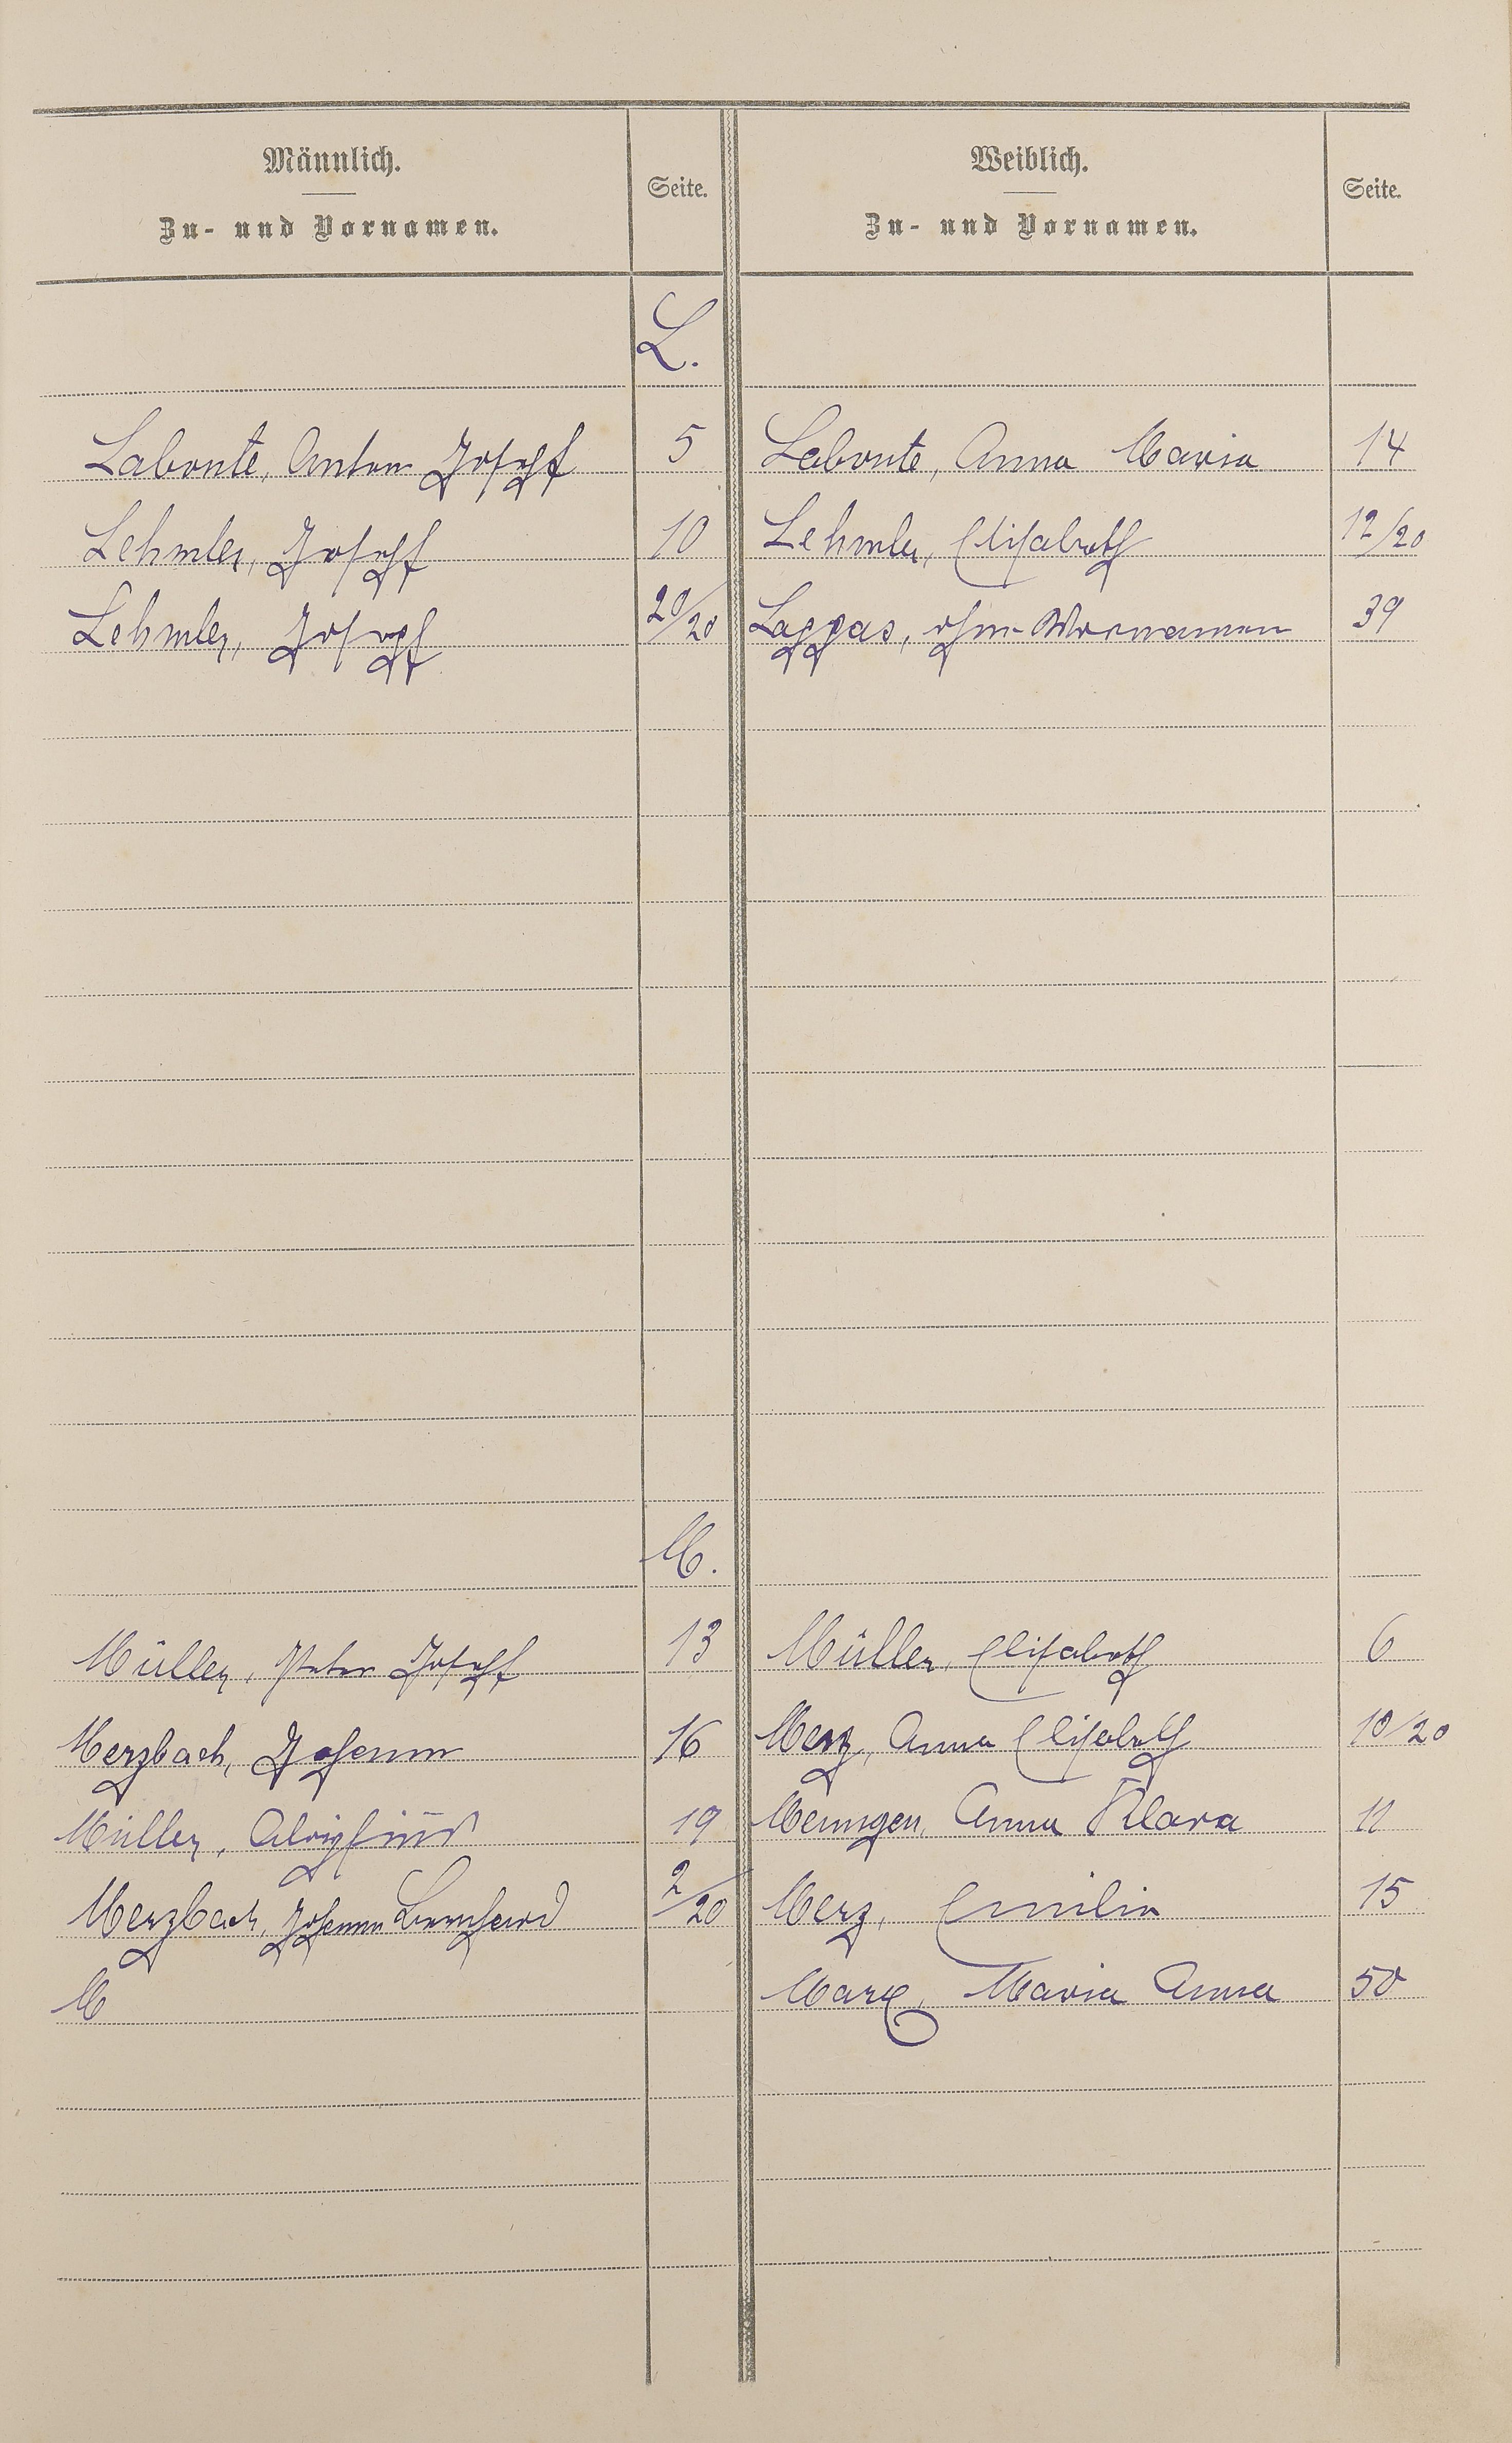 Männlich.
Zu- und Vornamen.
Seite.
Weiblich.
Zu- und Vornamen.
Seite.
L.
Labonte, Anton Joseph 5 Labonte, Anna Maria 14
Lehmler, Joseph 10 Lehmler, Elisabeth 12/20
Lehmler, Joseph 20/20 Lappas, ohne Vornamen 39
M.
Müller, Peter Joseph 13 Müller, Elisabeth 6
Merzbach, Johann 16 Merz, Anna Elisabeth 10/20
Müller, Aloysius 19 Mennigen, Anna Klara 11
Merzbach, Johann Bernhard 2/20 Merz, Emilie 15
M Marx, Maria Anna 50